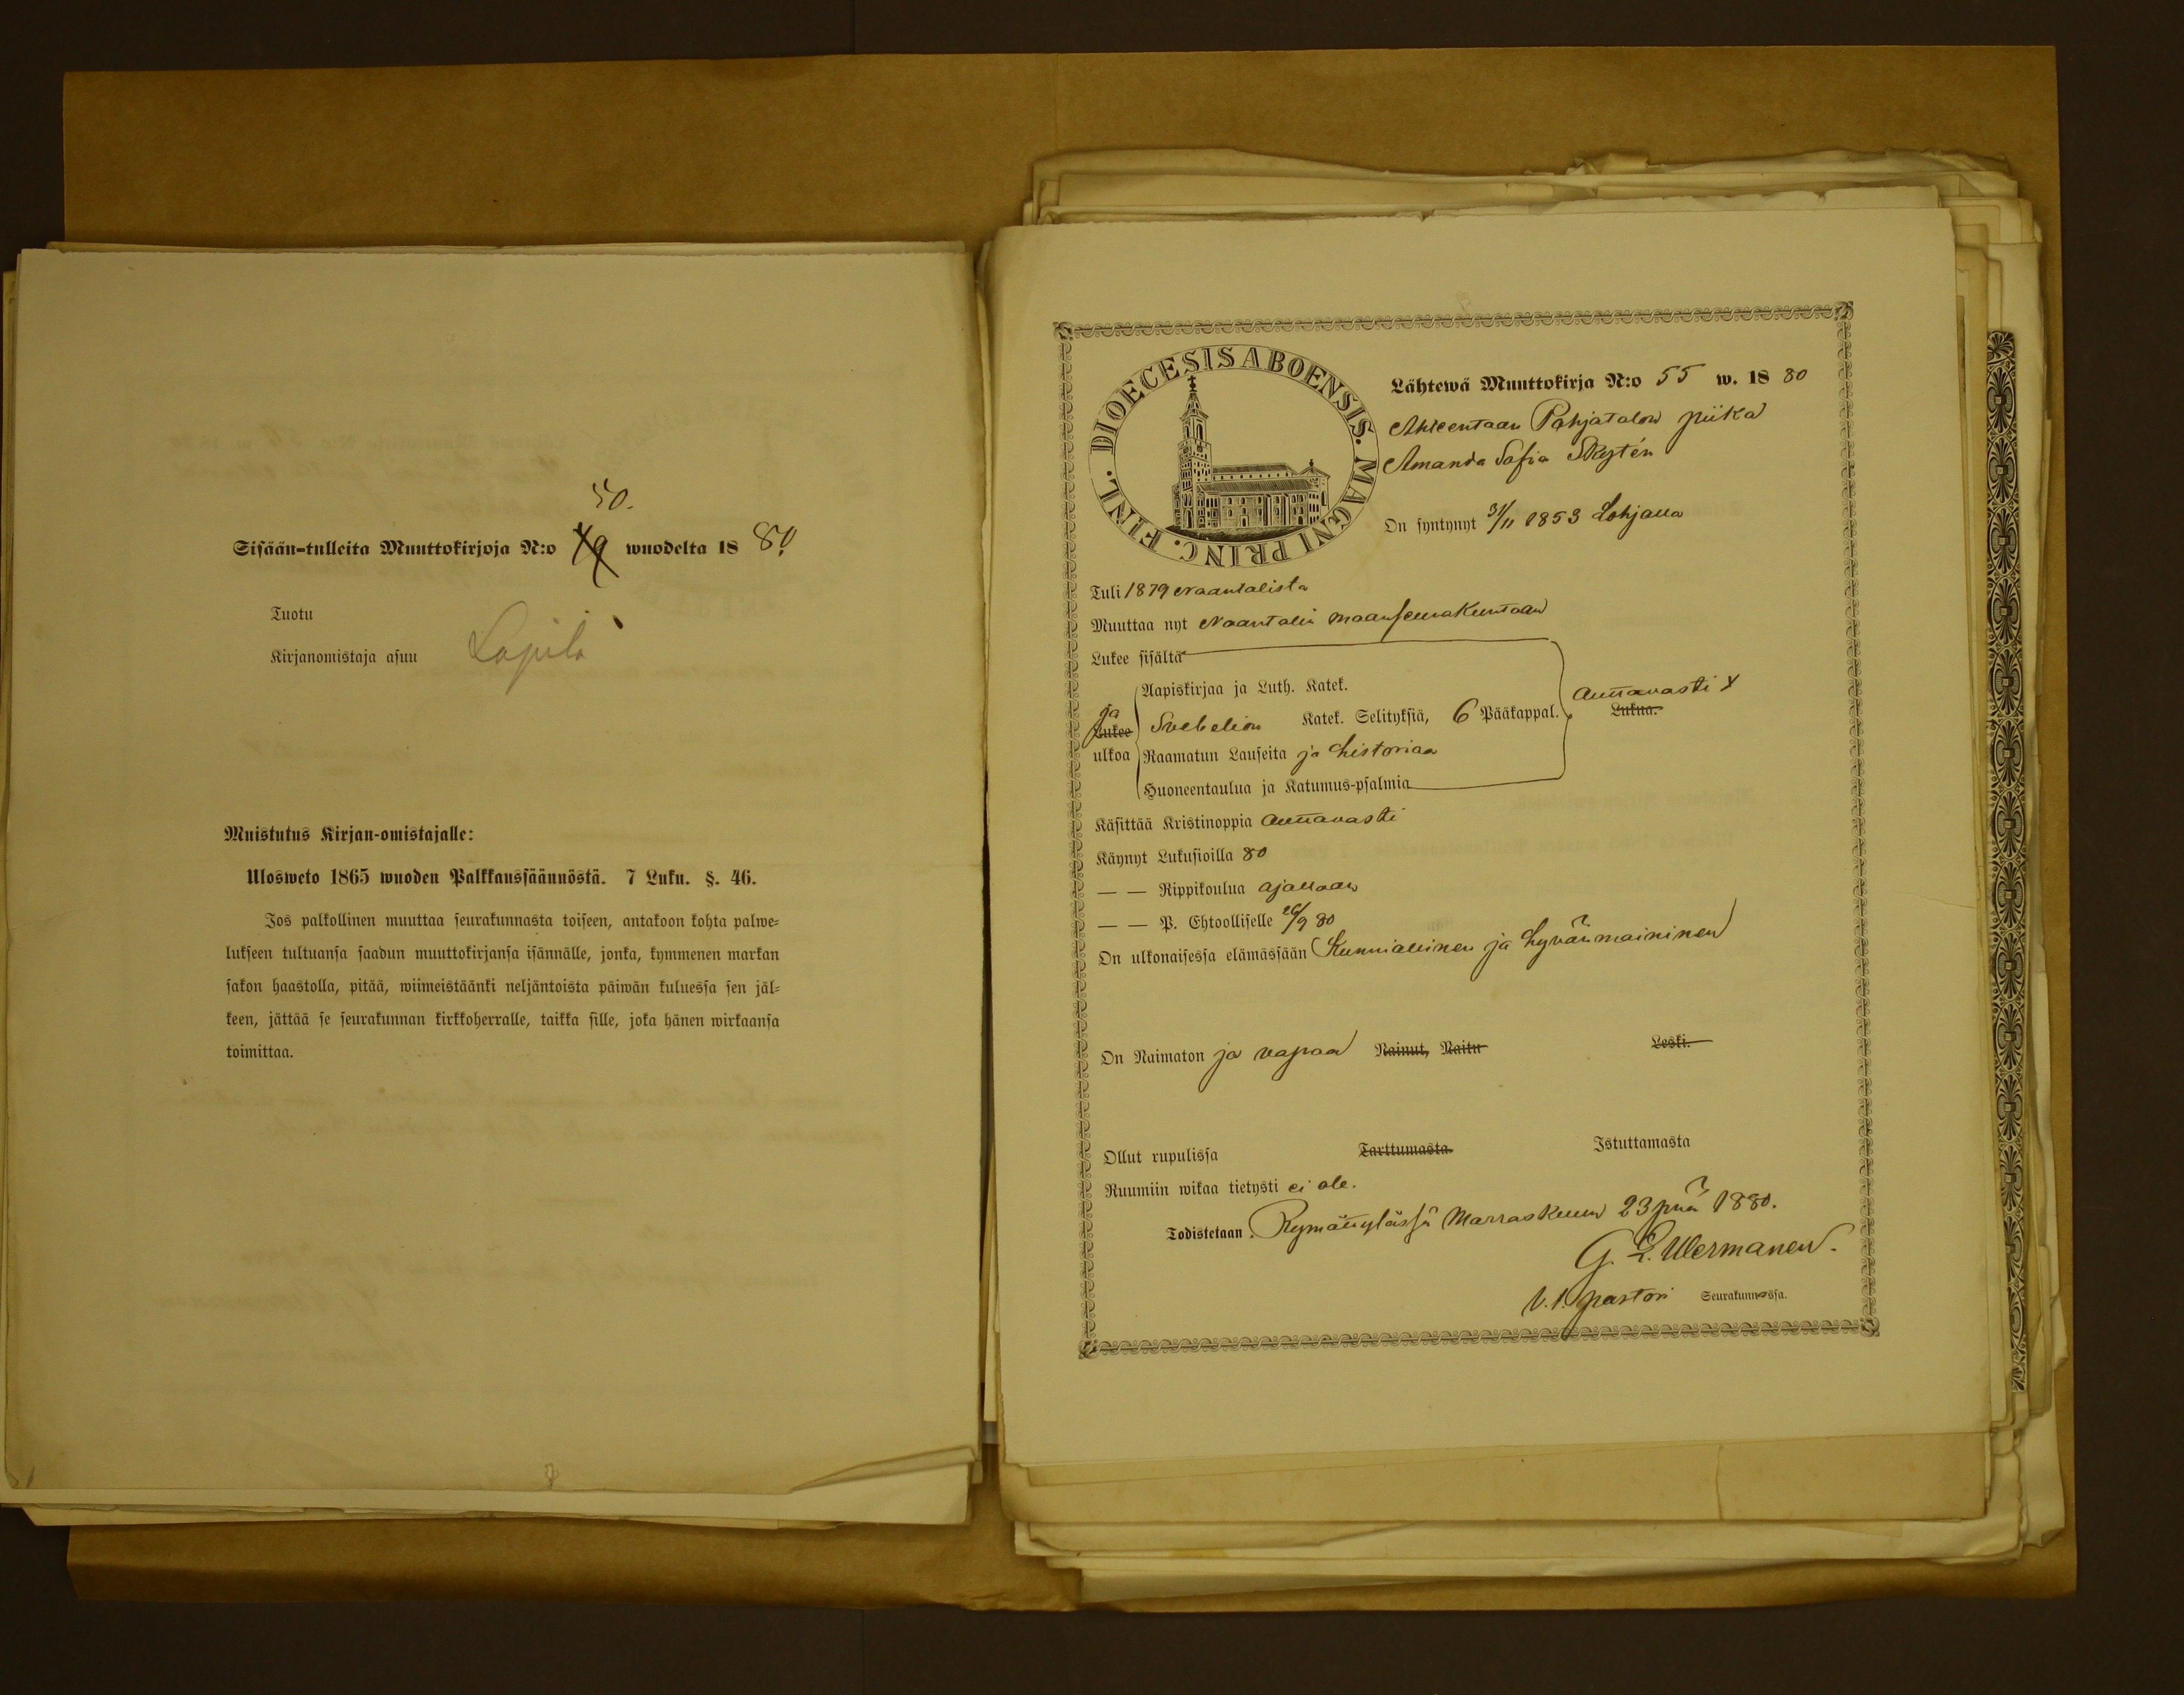 50.
Sisään-tulleita Muuttokirjoja N:o 49 wuodelta 1880
Tuotu
Kirjanomistaja asuu Lapila
Muistutus Kirjan-omistajalle:
Ulosweto 1865 wuoden Palkkaussäännöstä. 7 Luku. §. 46.
Jos palkollinen muuttaa seurakunnasta toiseen, antakoon kohta palwe-
lukseen tultuansa saadun muuttokirjansa isännälle, jonka, kymmenen markan
sakon haastolla, pitää, wiimeistäänki neljäntoista päiwän kuluessa sen jäl-
keen, jättää se seurakunnan kirkkoherralle, taikka sille, joka hänen wirkaansa
toimittaa.
DIOECESIS ABOENSIS. MAGNI PRINC. FINL.
Lähtewä Muuttokirja N:o 55 w. 1880
Ahteentaan Pohjatalon piika
Amanda Sofia Skytén
On syntynyt 31/11 1853 Lohjalla
Tuli 1879 Naantalista
Muuttaa nyt Naantalin maanseurakuntaan
Lukee sisältä
Aapiskirjaa ja Luth. Katek.
ja Lukee ulkoa Svebelion Katek. Selityksiä, 6 Pääkappal. auttavasti x Lukua.
Raamatun Lauseita ja historiaa
Huoneentaulua ja Katumus-psalmia
Käsittää Kristinoppia auttavasti
Käynyt Lukusioilla 80
— — Rippikoulua ajallaan
— — P. Ehtoolliselle 26/9 80
On ulkonaisessa elämässään Kunniallinen ja hyvänmaininen
On Naimaton ja vapaa Nainut, Naitu Leski.
Ollut rupulissa Tarttumasta. Istuttamasta
Ruumiin wikaa tietysti ei ole.
Todistetaan. Rymättylässä Marraskuun 23 pnä 1880.
G. L. Wermanen.
V. t. pastori Seurakunnassa.